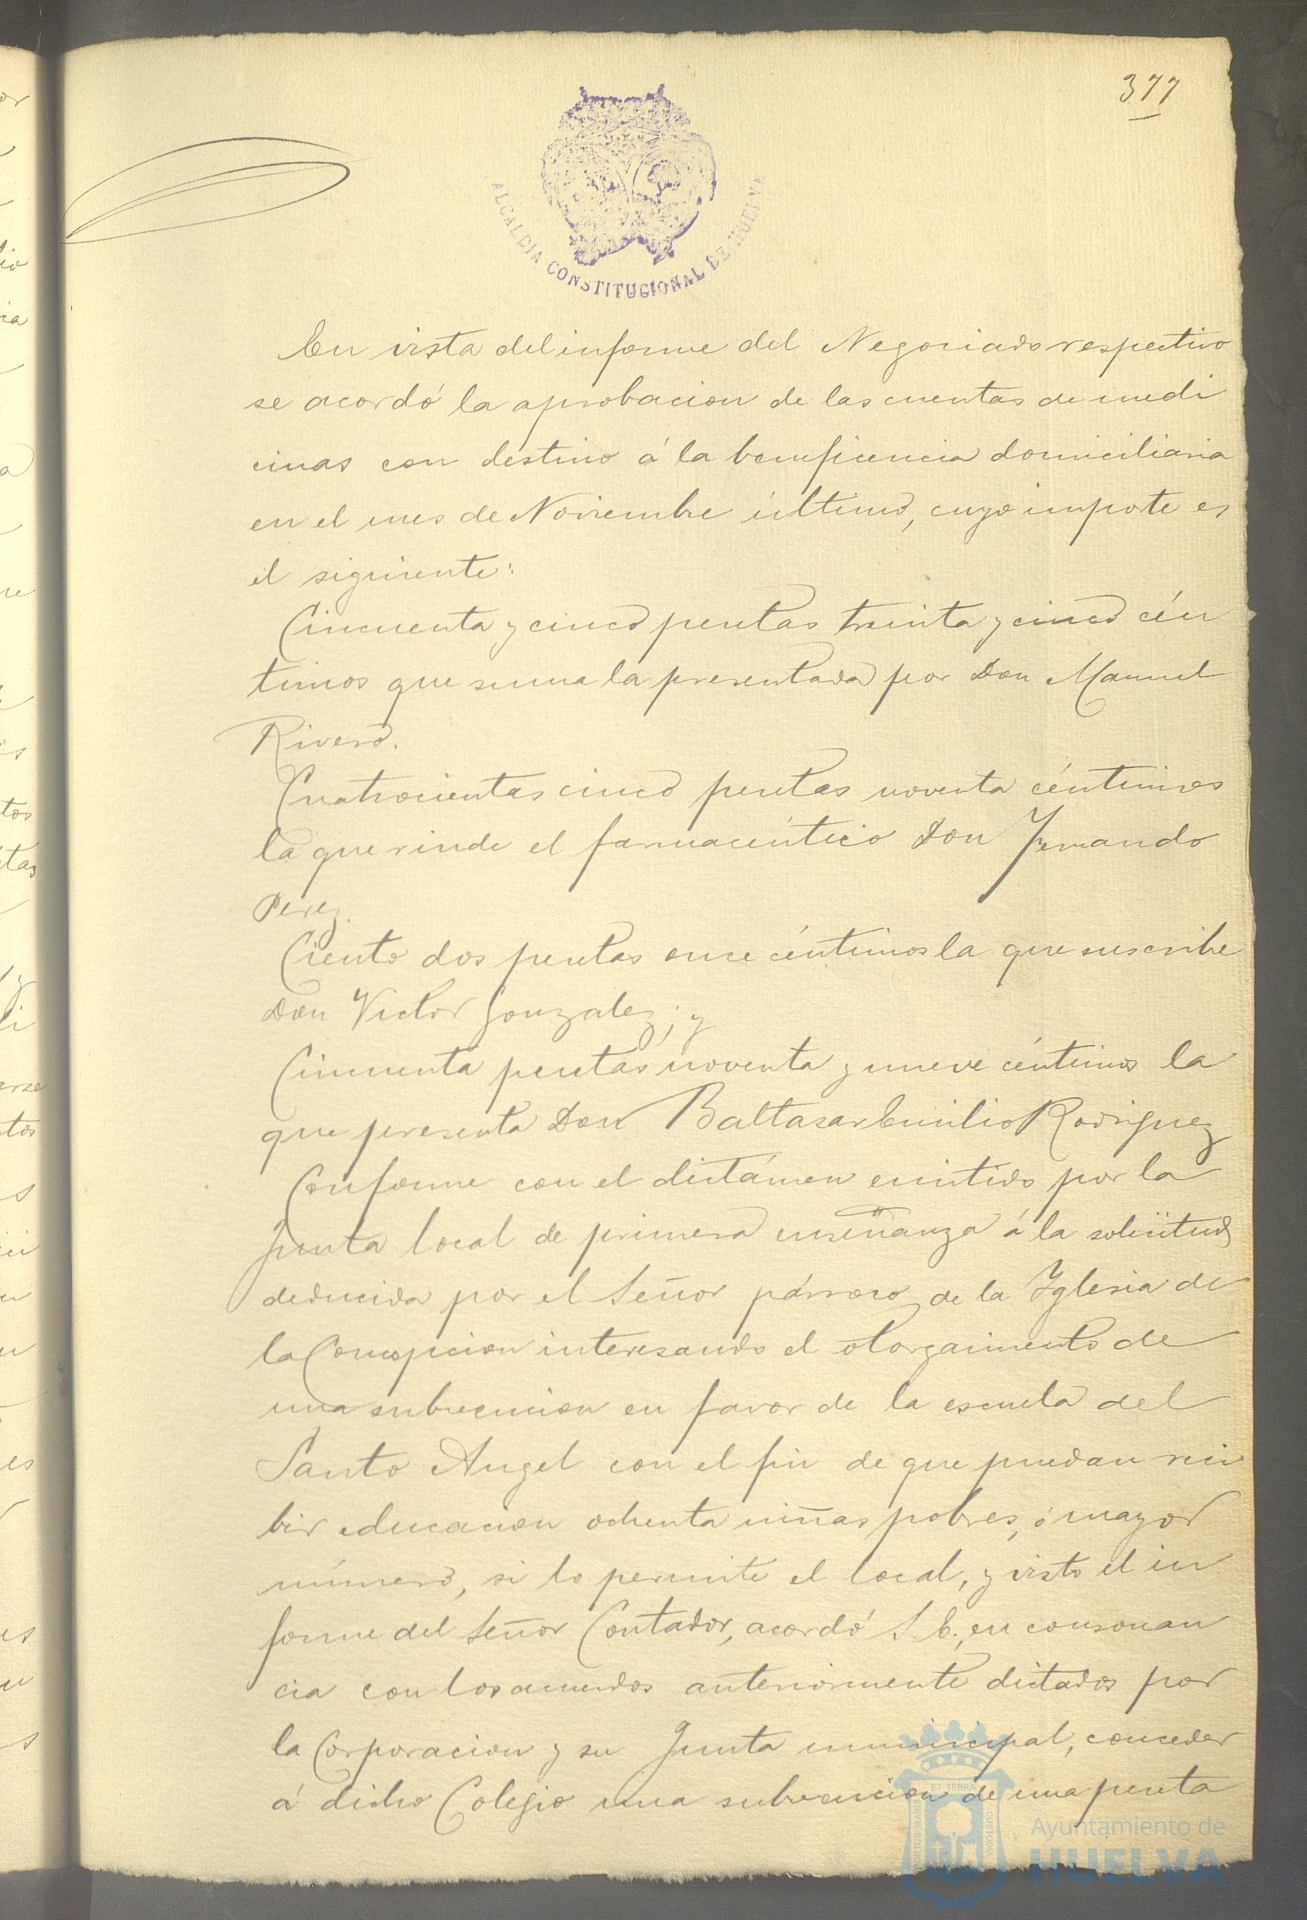 377
ALCALDIA CONSTITUCIONAL DE HUELVA
En vista del informe del Negociado respectivo
se acordó la aprobacion de las cuentas de medi
cinas con destino á la beneficencia domiciliaria
en el mes de Noviembre último, cuyo importe es
el siguiente:
Cincuenta y cinco pesetas treinta y cinco cén
timos que suma la presentada por Don Manuel
Rivero.
Cuatrocientas cinco pesetas noventa céntimos
la que rinde el farmacéutico Don Fernando
Perez.
Ciento dos pesetas once céntimos la que suscribe
Don Victor Gonzalez; y
Cincuenta pesetas noventa y nueve céntimos la
que presenta Don Baltasar Emilio Rodriguez
Conforme con el dictámen emitido por la
Junta local de primera enseñanza á la solicitud
deducida por el Señor párroco de la Iglesia de
la Concepcion interesando el otorgamiento de
una subvencion en favor de la escuela del
Santo Angel con el fin de que puedan reci
bir educacion ochenta niñas pobres, ó mayor
número, si lo permite el local, y visto el in
forme del Señor Contador, acordó S. E., en consonan
cia con los acuerdos anteriormente dictados por
la Corporacion y su Junta municipal, conceder
á dicho Colegio una subvencion de una peseta
Ayuntamiento de
HUELVA